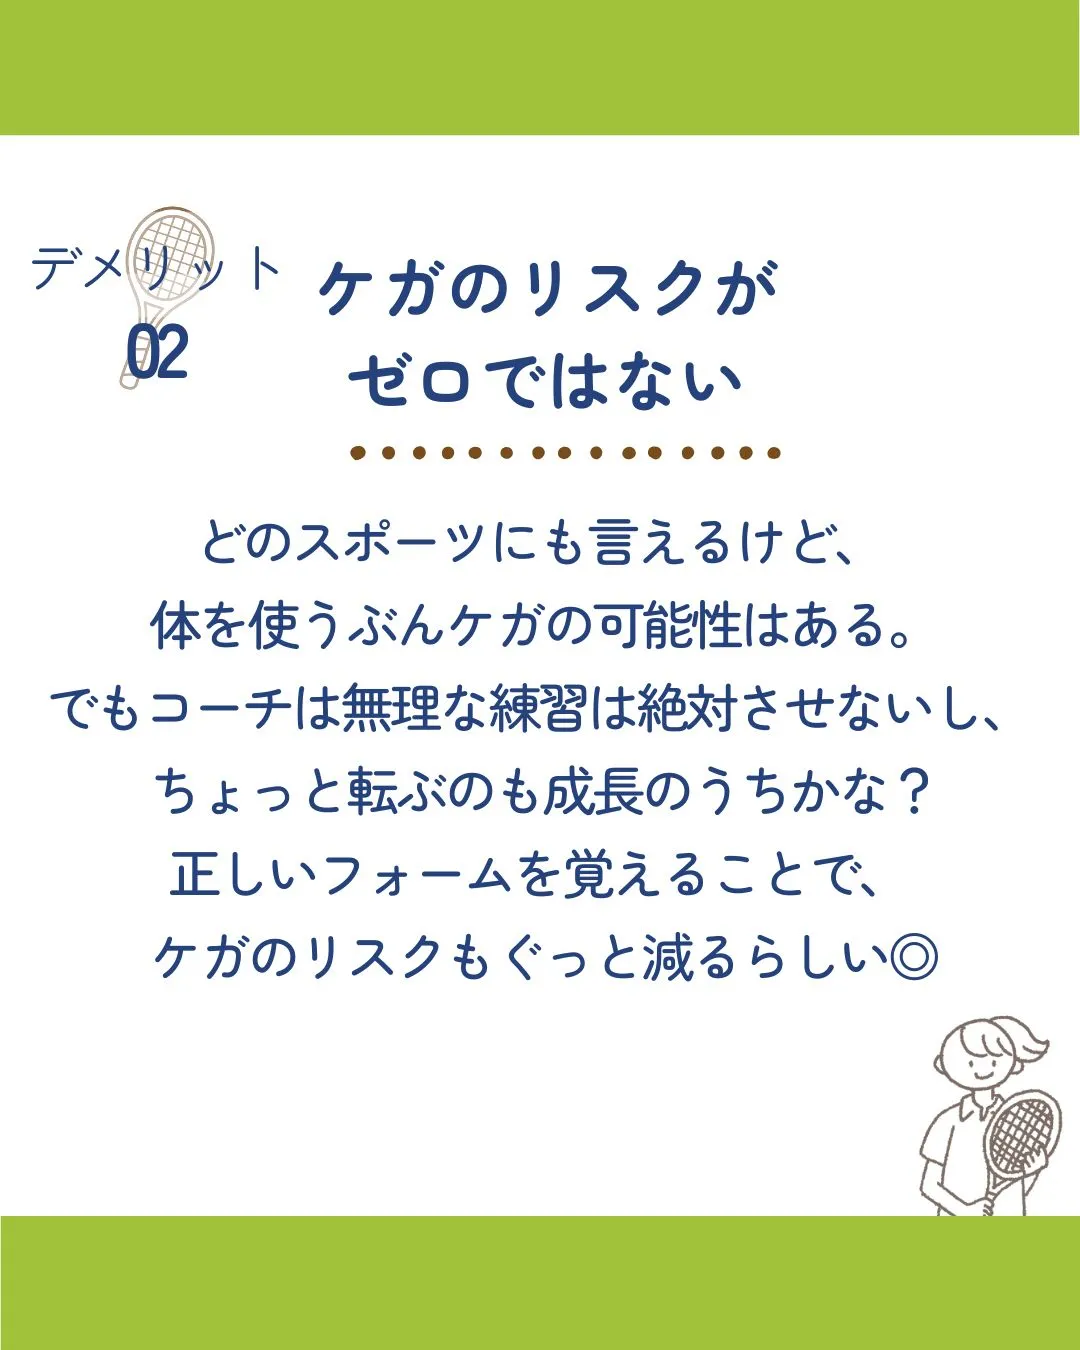 デメリット
02
ケガのリスクが
ゼロではない
どのスポーツにも言えるけど、
体を使うぶんケガの可能性はある。
でもコーチは無理な練習は絶対させないし、
ちょっと転ぶのも成長のうちかな？
正しいフォームを覚えることで、
ケガのリスクもぐっと減るらしい◎